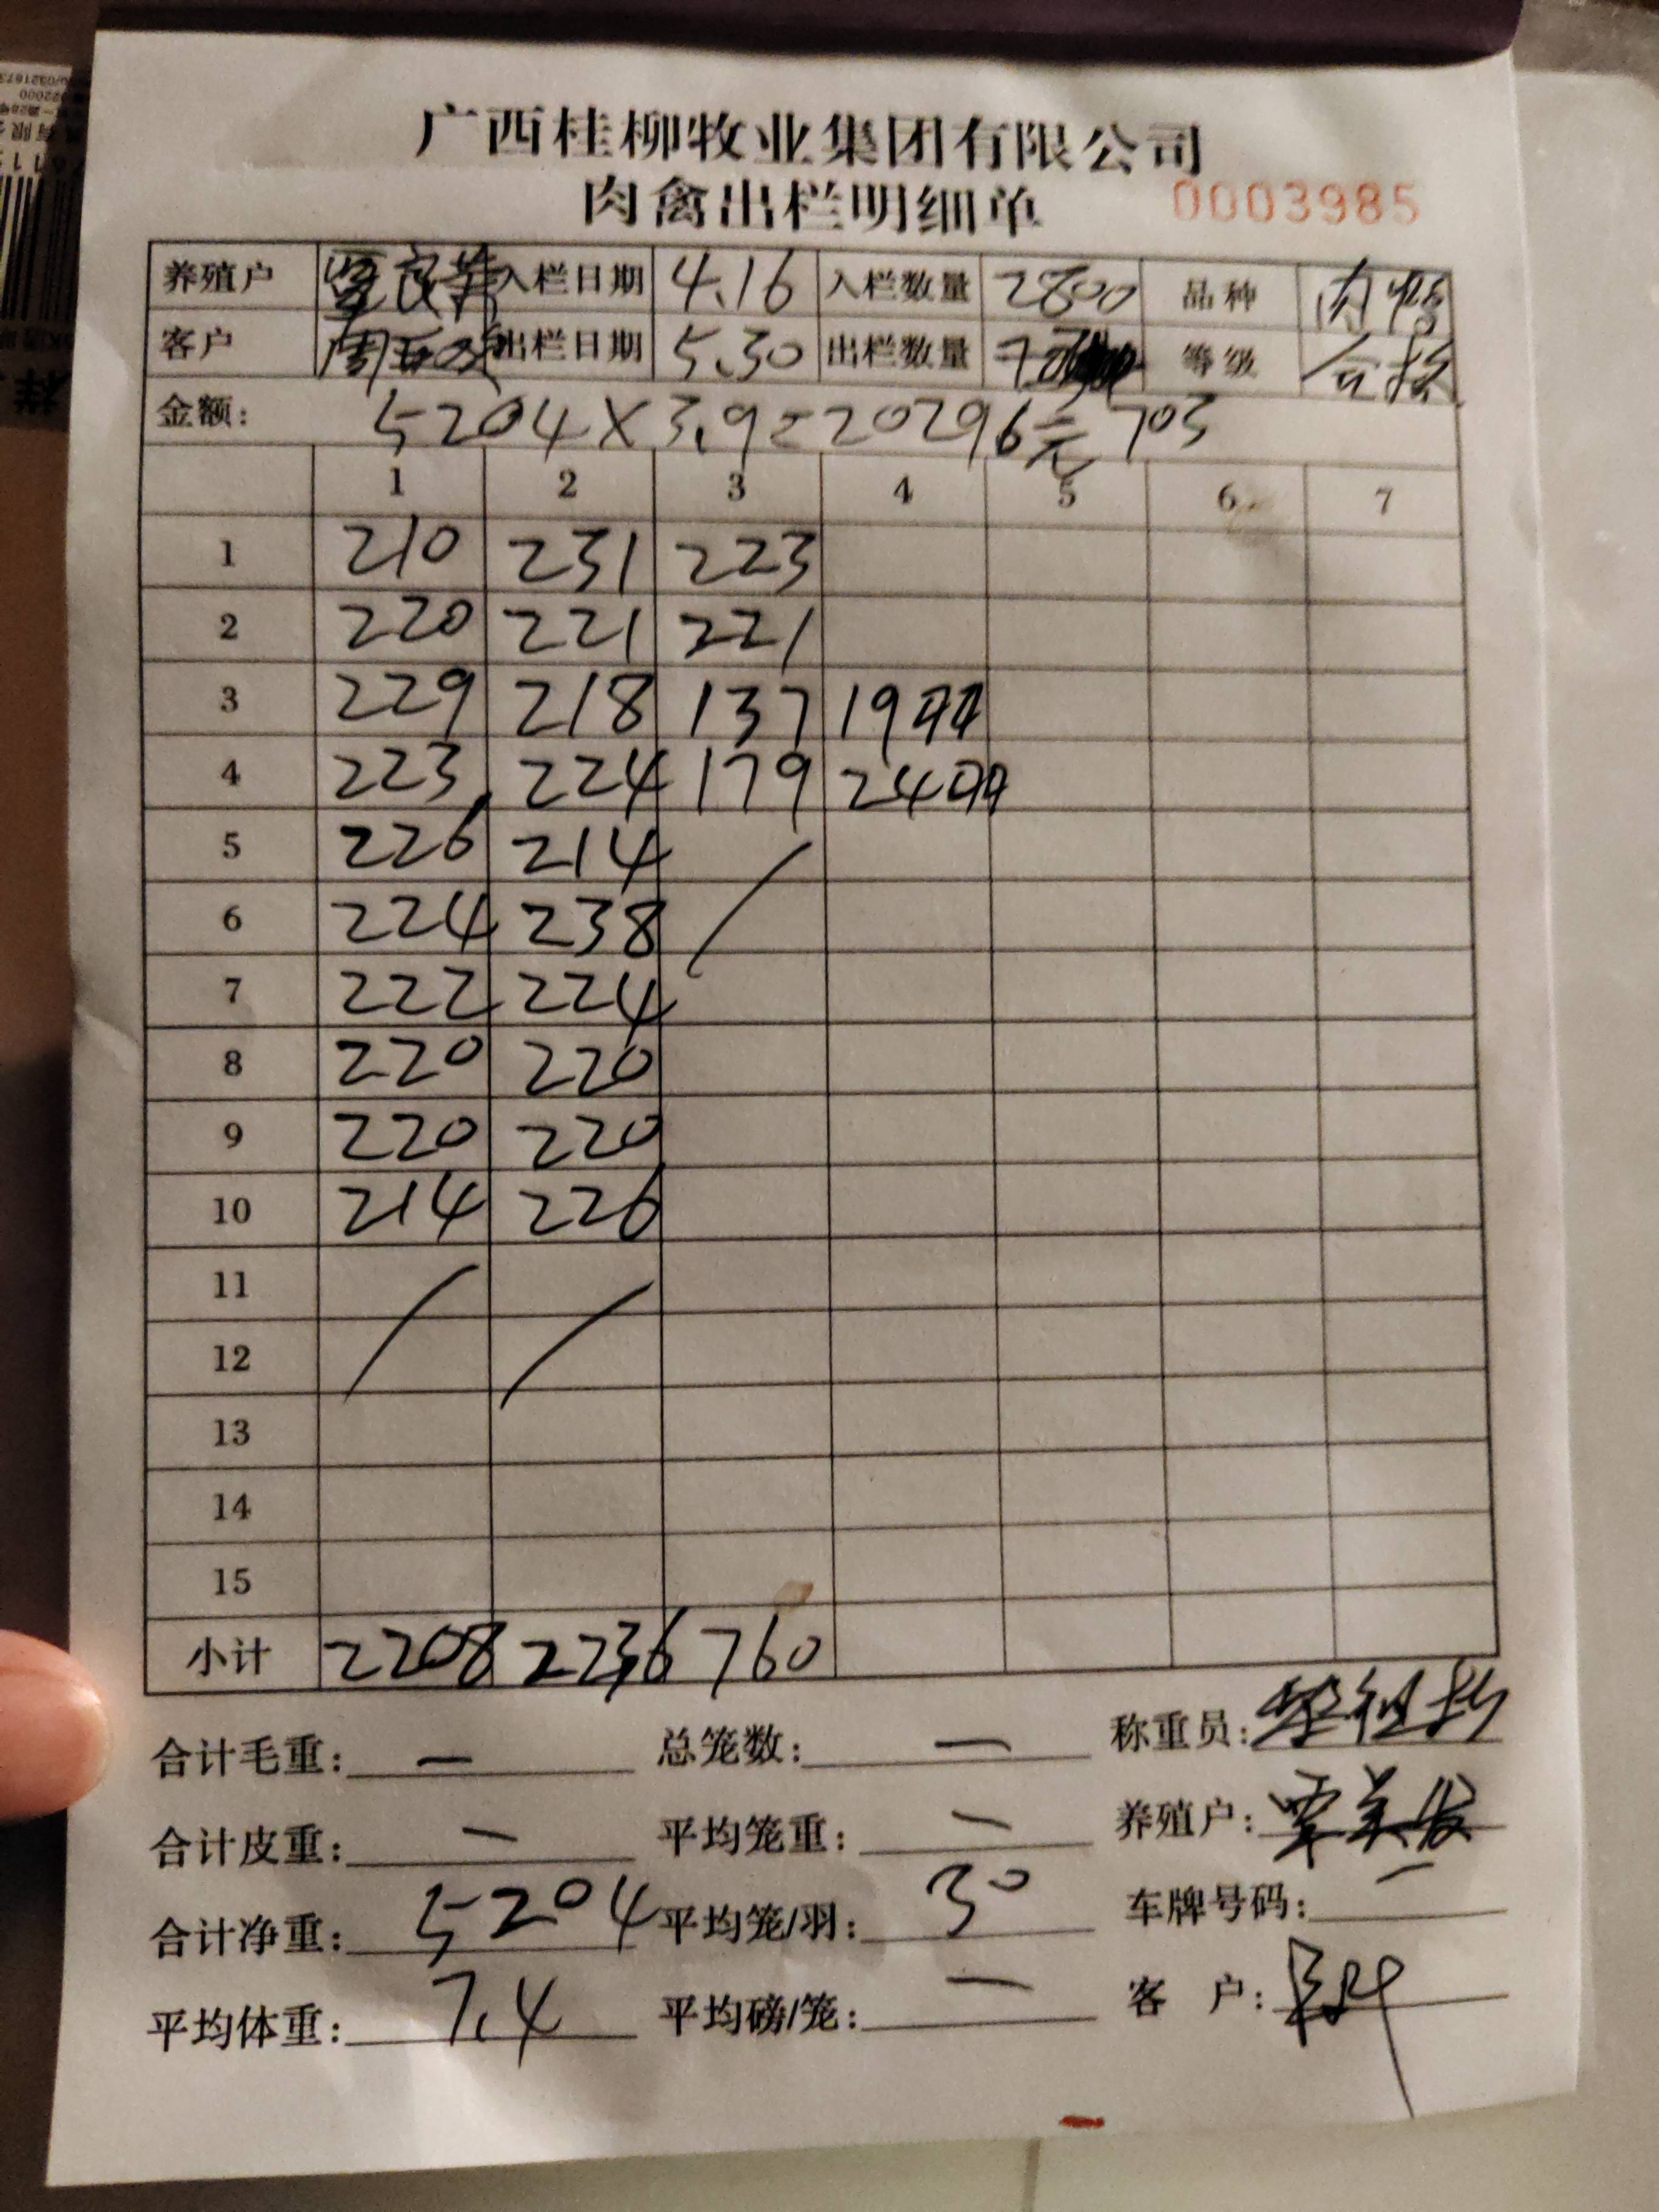 广西桂柳牧业集团有限公司
肉禽出栏明细单 0003985
养殖户 入栏日期 4.16 入栏数量 2800 品种 肉鸭
客户 出栏日期 5.30 出栏数量 等级 合格
金额: 5204×3.9=20296元 703
1 2 3 4 5 6 7
1 210 231 223
2 220 221 221
3 229 218 137 19
4 223 224 179 24
5 226 214
6 224 238
7 222 224
8 220 220
9 220 220
10 214 226
11
12
13
14
15
小计 2208 2236 760
合计毛重: — 总笼数: — 称重员:
合计皮重: — 平均笼重: — 养殖户: 覃美发
合计净重: 5204 平均笼/羽: 30 车牌号码: —
平均体重: 7.4 平均磅/笼: — 客户: